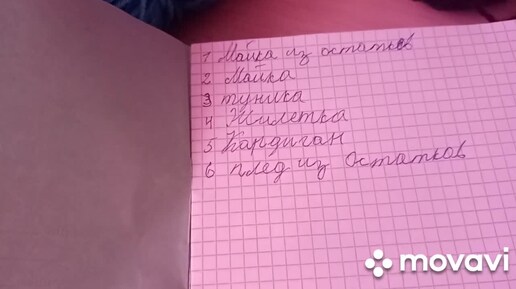 1 Майка из остатков
2 Майка
3 туника
4 Жилетка
5 Кардиган
6 плед из остатков
movavi